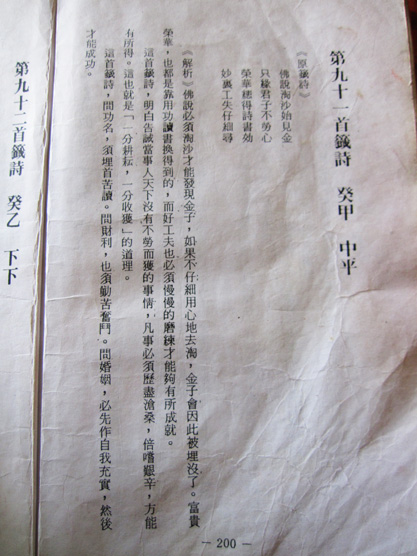 第九十一首籤詩 癸甲 中平
《原籤詩》
佛說淘沙始見金
只緣君子不勞心
榮華總得詩書効
妙裏工夫仔細尋
《解析》佛說必須淘沙才能發現金子，如果不仔細用心地去淘，金子會因此被埋沒了。富貴
榮華，也都是靠用功讀書換得到的，而好工夫也必須慢慢的磨練才能夠有所成就。
這首籤詩，明白告誡當事人天下沒有不勞而獲的事情，凡事必須歷盡滄桑，倍嚐艱辛，方能
有所得。這也就是「一分耕耘，一分收獲」的道理。
這首籤詩，問功名，須埋首苦讀。問財利，也須勤苦奮鬥。問婚姻，必先作自我充實，然後
才能成功。
第九十二首籤詩 癸乙 下下
— 200 —